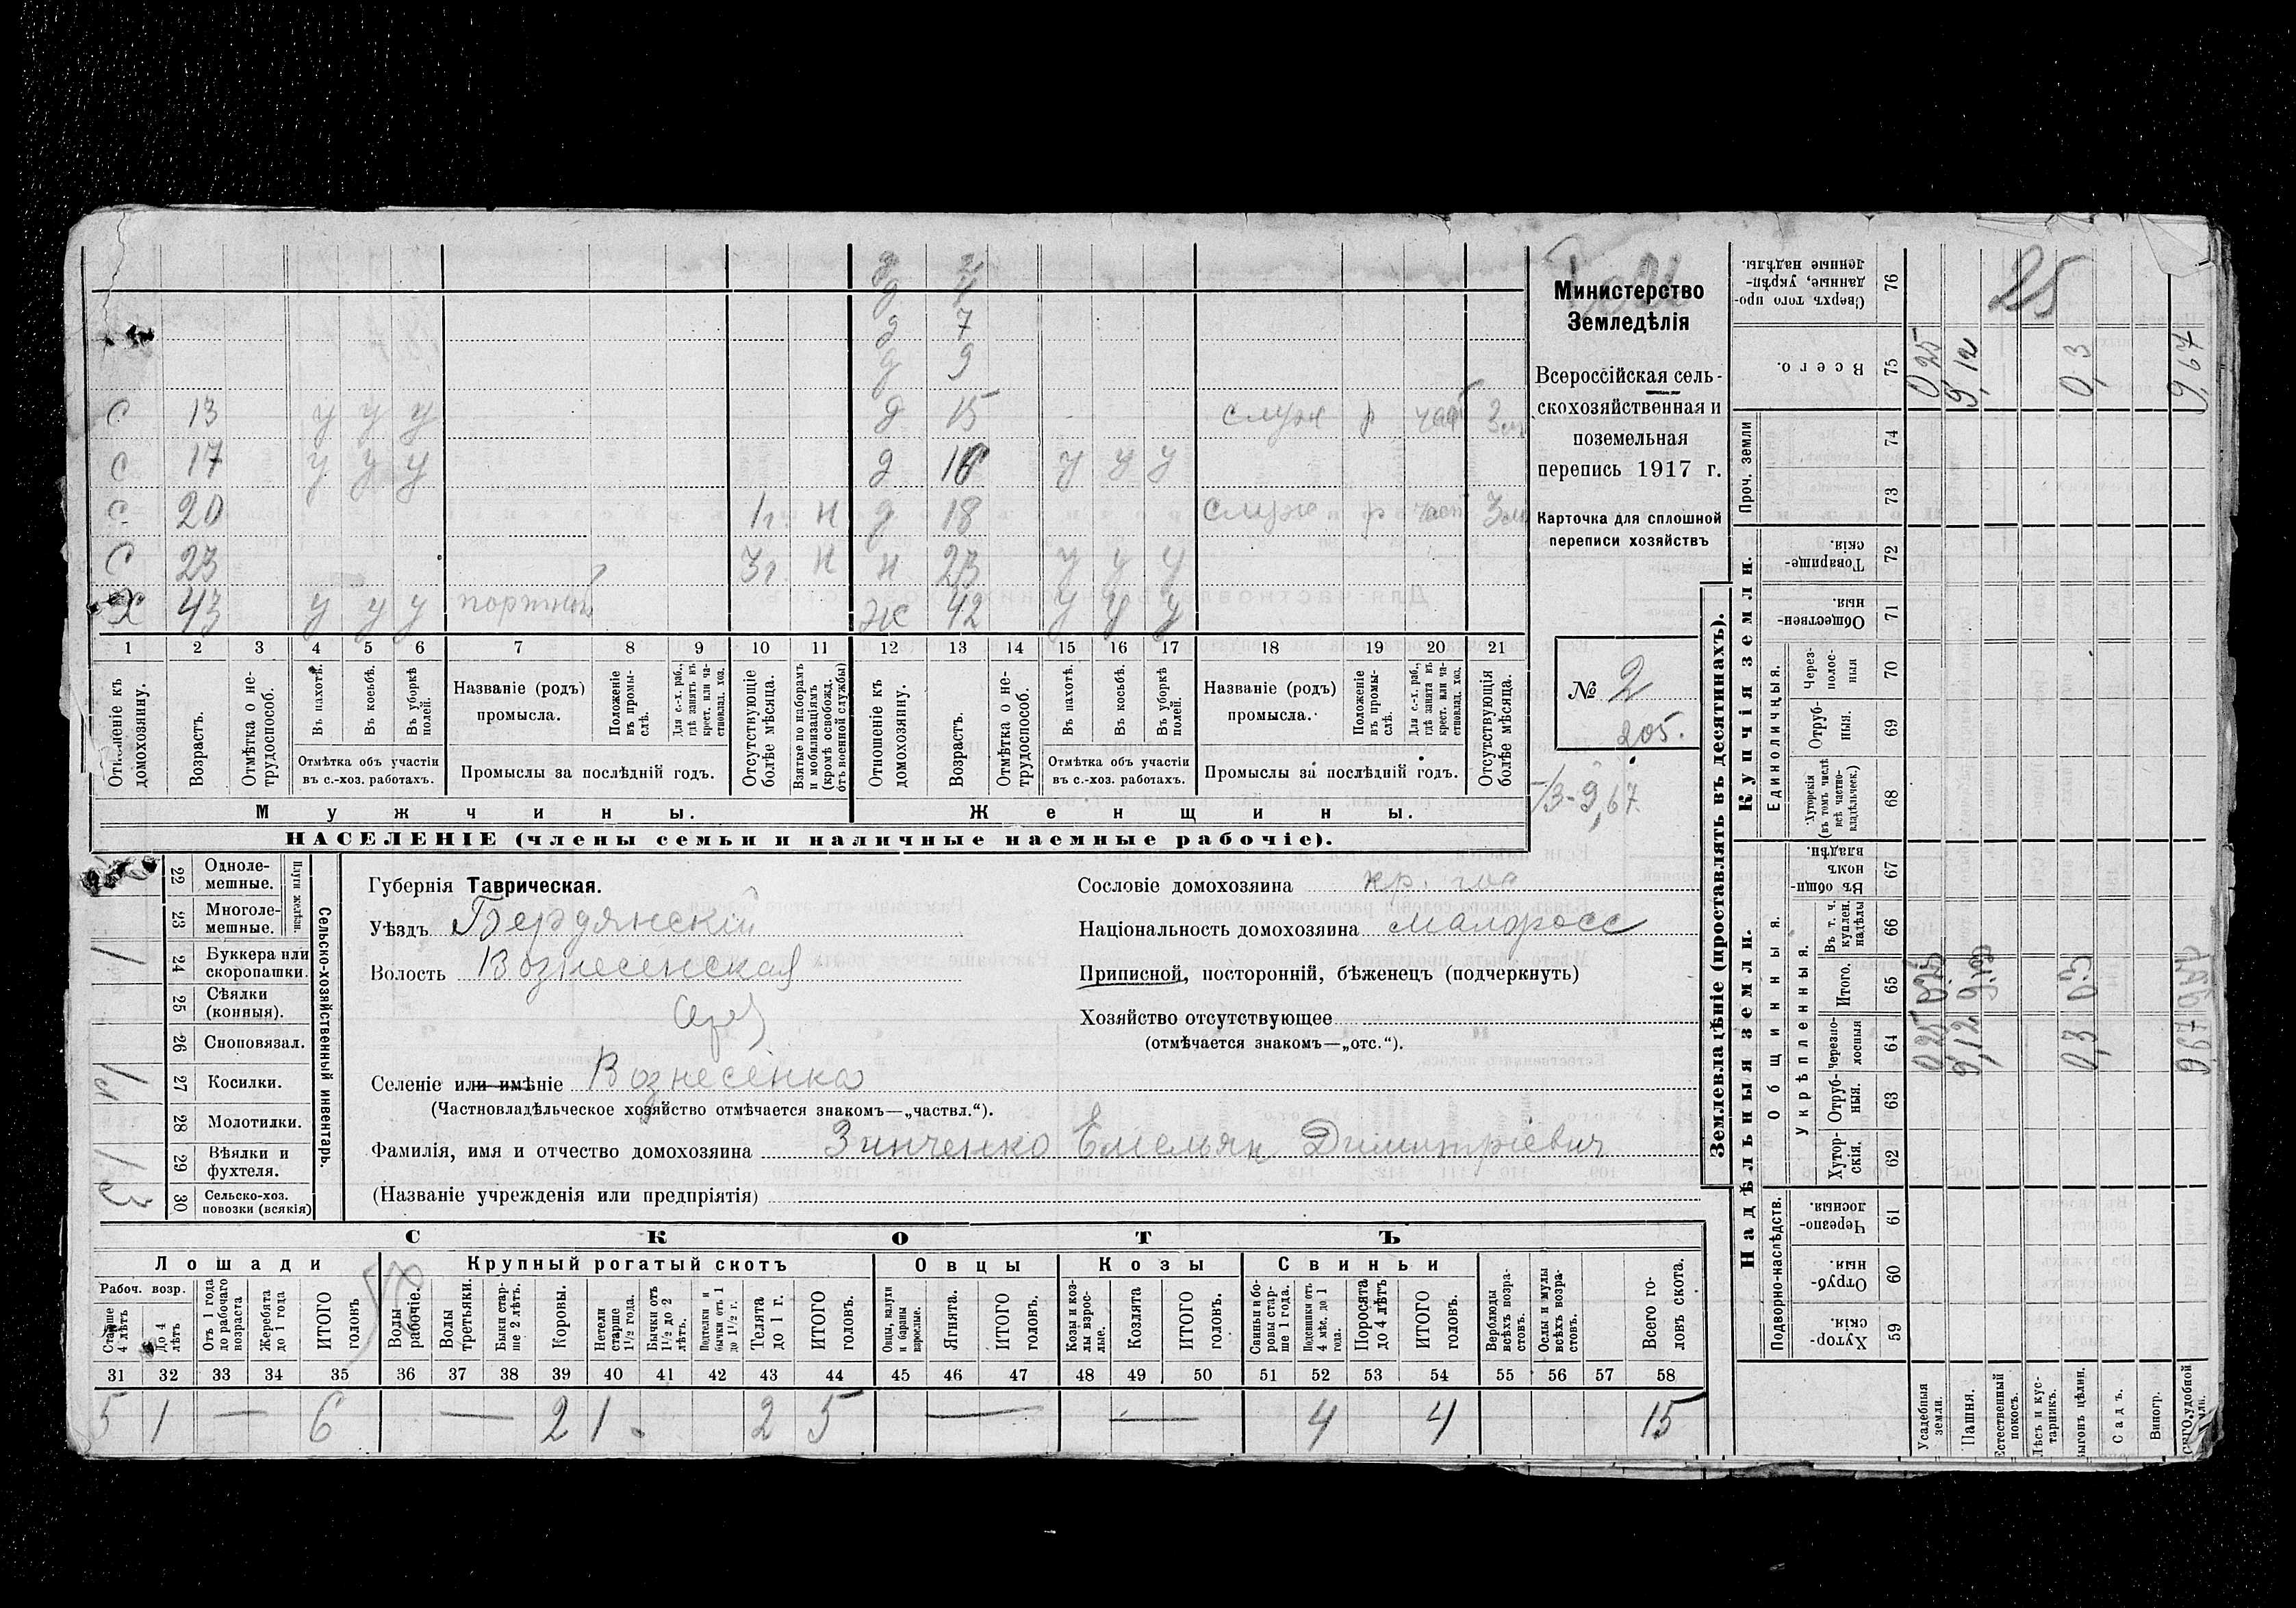 д 2
д 4
д 7
д 9
с 13 у у у д 15 служ р част 3 м
с 17 у у у д 16 у у у
с 20 1 г. н д 18 служ р част 3 м
с 23 3 г. н н 23 у у у
х 43 у у у портной ж 42 у у у
1 2 3 4 5 6 7 8 9 10 11 12 13 14 15 16 17 18 19 20 21
Отношеніе къ домохозяину.
Возрастъ.
Отмѣтка о нетрудоспособ.
Въ пахотѣ.
Въ косьбѣ.
Въ уборкѣ полей.
Отмѣтка объ участіи въ с.-хоз. работахъ.
Названіе (родъ) промысла.
Положеніе въ промыслѣ.
Для с.-х. раб., гдѣ занятъ въ крест. или частновлад. хоз.
Промыслы за послѣдній годъ.
Отсутствующіе болѣе мѣсяца.
Взятые по наборамъ и мобилизаціямъ (кромѣ освобожд. отъ военной службы)
Отношеніе къ домохозяину.
Возрастъ.
Отмѣтка о нетрудоспособ.
Въ пахотѣ.
Въ косьбѣ.
Въ уборкѣ полей.
Отмѣтка объ участіи въ с.-хоз. работахъ.
Названіе (родъ) промысла.
Положеніе въ промыслѣ.
Для с.-х. раб., гдѣ занята въ крест. или частновлад. хоз.
Промыслы за послѣдній годъ.
Отсутствующія болѣе мѣсяца.
Мужчины.
Женщины.
НАСЕЛЕНІЕ (члены семьи и наличные наемные рабочіе).
Министерство
Земледѣлія
Всероссійская сель-
скохозяйственная и
поземельная
перепись 1917 г.
Карточка для сплошной
переписи хозяйствъ
№ 2
205.
13-9,67.
22 Одноле-мешные.
23 Многоле-мешные.
Плуги желѣзн.
24 Буккера или скоропашки. 1
25 Сѣялки (конныя).
26 Сноповязал.
27 Косилки. 1
28 Молотилки.
29 Вѣялки и фухтеля. 1
30 Сельско-хоз. повозки (всякія) 3
Сельско-хозяйственный инвентарь.
Губернія Таврическая.
Уѣздъ Бердянскій
Волость Вознесенская
Селеніе или имѣніе Вознесенка
(Частновладѣльческое хозяйство отмѣчается знакомъ—„частвл.“).
Фамилія, имя и отчество домохозяина Зинченко Емельян Димитріевич
(Названіе учрежденія или предпріятія)
Сословіе домохозяина кр.
Національность домохозяина малоросс
Приписной, посторонній, бѣженецъ (подчеркнуть)
Хозяйство отсутствующее
(отмѣчается знакомъ—„отс.“).
СКОТЪ
Лошади Крупный рогатый скотъ Овцы Козы Свиньи
Рабоч. возр.
Старше 4 лѣтъ
До 4 лѣтъ
Отъ 1 года до рабочаго возраста
Жеребята до 1 года
ИТОГО головъ
Волы рабочіе.
Волы третьяки.
Быки старше 2 лѣтъ.
Коровы.
Нетели старше 1½ года.
Бычки отъ 1½ до 2 лѣтъ.
Подтелки и бычки отъ 1 до 1½ г.
Телята до 1 г.
ИТОГО головъ.
Овцы, валухи и бараны взрослые.
Ягнята.
ИТОГО головъ.
Козы и козлы взрослые.
Козлята
ИТОГО головъ.
Свиньи и боровы старше 1 года.
Подсвинки отъ 4 мѣс. до 1 года.
Поросята до 4 лѣтъ
ИТОГО головъ.
Верблюды всѣхъ возрастовъ.
Ослы и мулы всѣхъ возрастовъ.
Всего головъ скота.
31 32 33 34 35 36 37 38 39 40 41 42 43 44 45 46 47 48 49 50 51 52 53 54 55 56 57 58
5 1 — 6 — 2 1 2 5 — — 4 4 15
25
Землевладѣніе (проставлять въ десятинахъ).
Купчія земли.
Надѣльныя земли.
Сверхъ того проданные, укрѣпленные надѣлы. 76
Всего. 75 0,25 9,12 0,3 9,67
Проч. земли 74 73
Товарищескія. 72
Общественныя. 71
Единоличныя.
Черезполосныя 70
Отрубныя. 69
Хуторскія (въ томъ числѣ всѣ частновладѣльческ.) 68
Общинныя.
Въ общинномъ владѣн. 67
Укрѣпленныя.
Въ т. ч. куплен. надѣлы 66
Итого. 65 0,25 9,12 0,3 9,67
Черезполосныя 64 0,25 9,12 0,3 9,67
Отрубныя. 63
Хуторскія. 62
Подворно-наслѣдств.
Черезполосныя. 61
Отрубныя. 60
Хуторскія. 59
Усадебныя земли.
Пашня.
Естественный покосъ.
Лѣсъ и кустарникъ.
Выгонъ цѣлин.
Садъ.
Виногр.
удобной